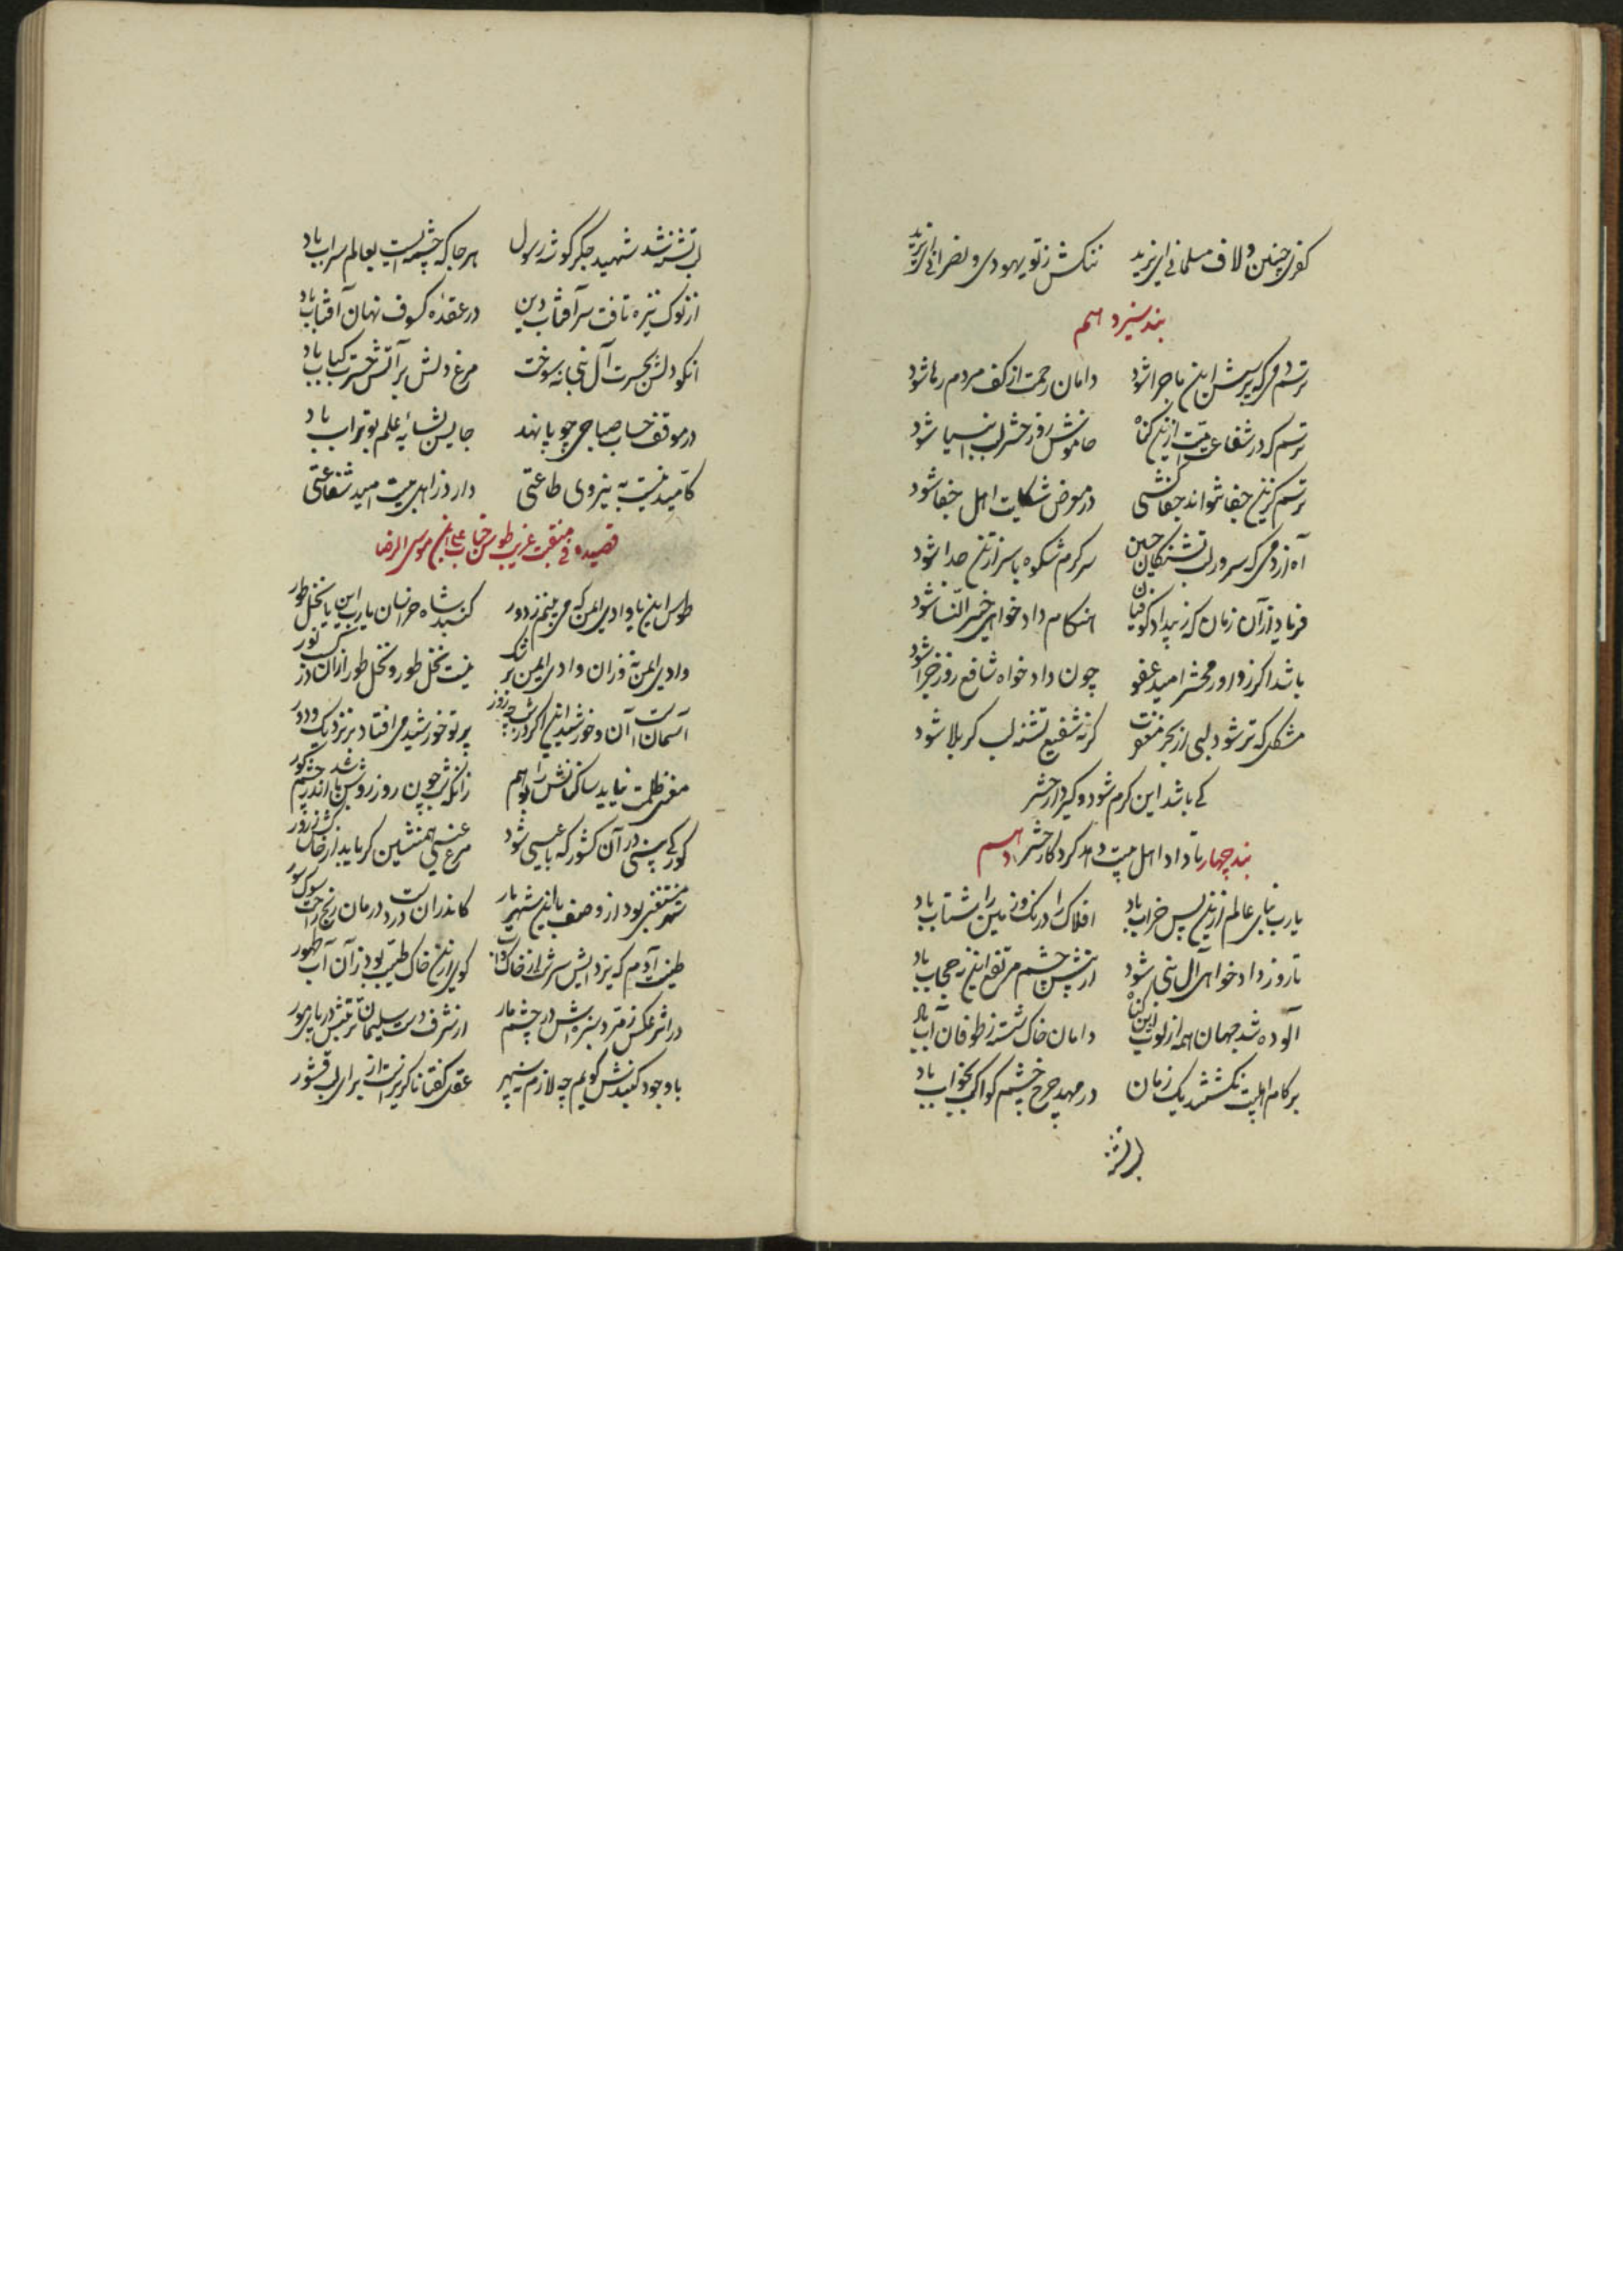 کفر چنین و لاف مسلمانی ای یزید ننکش ز تو یهودی و نصرانی ای یزید
بند سیزدهم
ترسم دمی که پرسش این ماجرا شود دامان رحمت از کف مردم رها شود
ترسم که در شفاعت امت ازین کناه خاموش روز حشر لب انبیا شود
ترسم کزین جفا نتواند جفاکشی در معرض شکایت اهل جفا شود
آه از دمی که سرور لب تشنکان حسین سرکرم شکوه با سر از تن جدا شود
فریاد از آن زمان که ز بیداد کوفیان هنکام دادخواهی خیر النسا شود
باشد اکر ز داور محشر امید عفو چون دادخواه شافع روز جزا شود
مشکل که تر شود لبی از بحر مغفرت کر نه شفیع تشنه لب کربلا شود
کی باشد این که کرم شود و کیر دار حشر
تا داد اهل بیت دهد کردکار حشر
بند چهاردهم
یارب بنای عالم ازین پس خراب باد افلاک را درنک و زمین را شتاب باد
تا روز دادخواهی آل نبی شود از پیش چشم مرتفع این نه حجاب باد
آلوده شد جهان همه از لوث این کناه دامان خاک شسته ز طوفان آب باد
بر کام اهلبیت نکشتند یک زمان در مهد چرخ چشم کواکب بخواب باد
لب تشنه
لب تشنه شد شهید جکرکوشه رسول هر جا که چشمه ایست بعالم سراب باد
از نوک نیزه تافت سر آفتاب دین در عقده کسوف نهان آفتاب باد
آنکو دلش بحسرت آل نبی نه سوخت مرغ دلش بر آتش حسرت کباب باد
در موقف حساب صباحی چو پا نهد جایش بسایه علم بوتراب باد
کامید نیست به نیروی طاعتی دارد ز اهل بیت امید شفاعتی
قصیده در منقبت غریب طوس جناب علی ابن موسی الرضا
طوس این یا وادی ایمن که می بینم ز دور کنبد شاه خراسان یارب این یا نخل طور
وادی ایمن نه وز آن وادی ایمن بر شک نیست نخل طور و نخل طور از آن در کسب نور
آسمان است آن و خورشید این اکر در شب چو روز پرتو خورشید می افتاد بر نزدیک و دور
معنی ظلمت نیاید ساکنانش را بوهم زانکه شب چون روز روشن باشد اندر چشم کور
کور کی بینی در آن کشور که با عیسی شود مرغ عیسی همنشین کر باید از خاکش ذرور
مستغنی بود از وصف باز این شهریار کاندران است درد درمان رنج راحت سوک سور
طینت آدم که یزدانش سرشت از خاک و آب کویی از این خاک طیب بود ز آن آب طهور
در اثر عکس زمرد سبزه اش در چشم مار از شرف دست سلیمان تربتش در پای مور
با وجود کنبدش کویم چه لازم نه سپهر عقل کفتا ناکزیر است از برای لب قشور